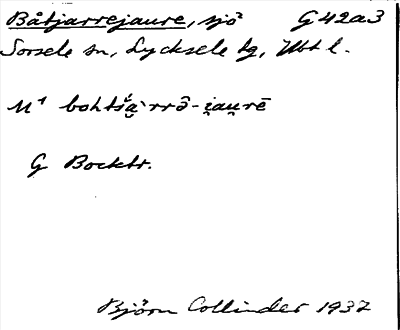 Båtjarrejaure, sjö G 42a3
Sorsele sn, Lycksele tg, Vbt l.
M¹ bohtšạ̄̀rrō-i̯au̯rē
G Bocktr.
Björn Collinder 1937